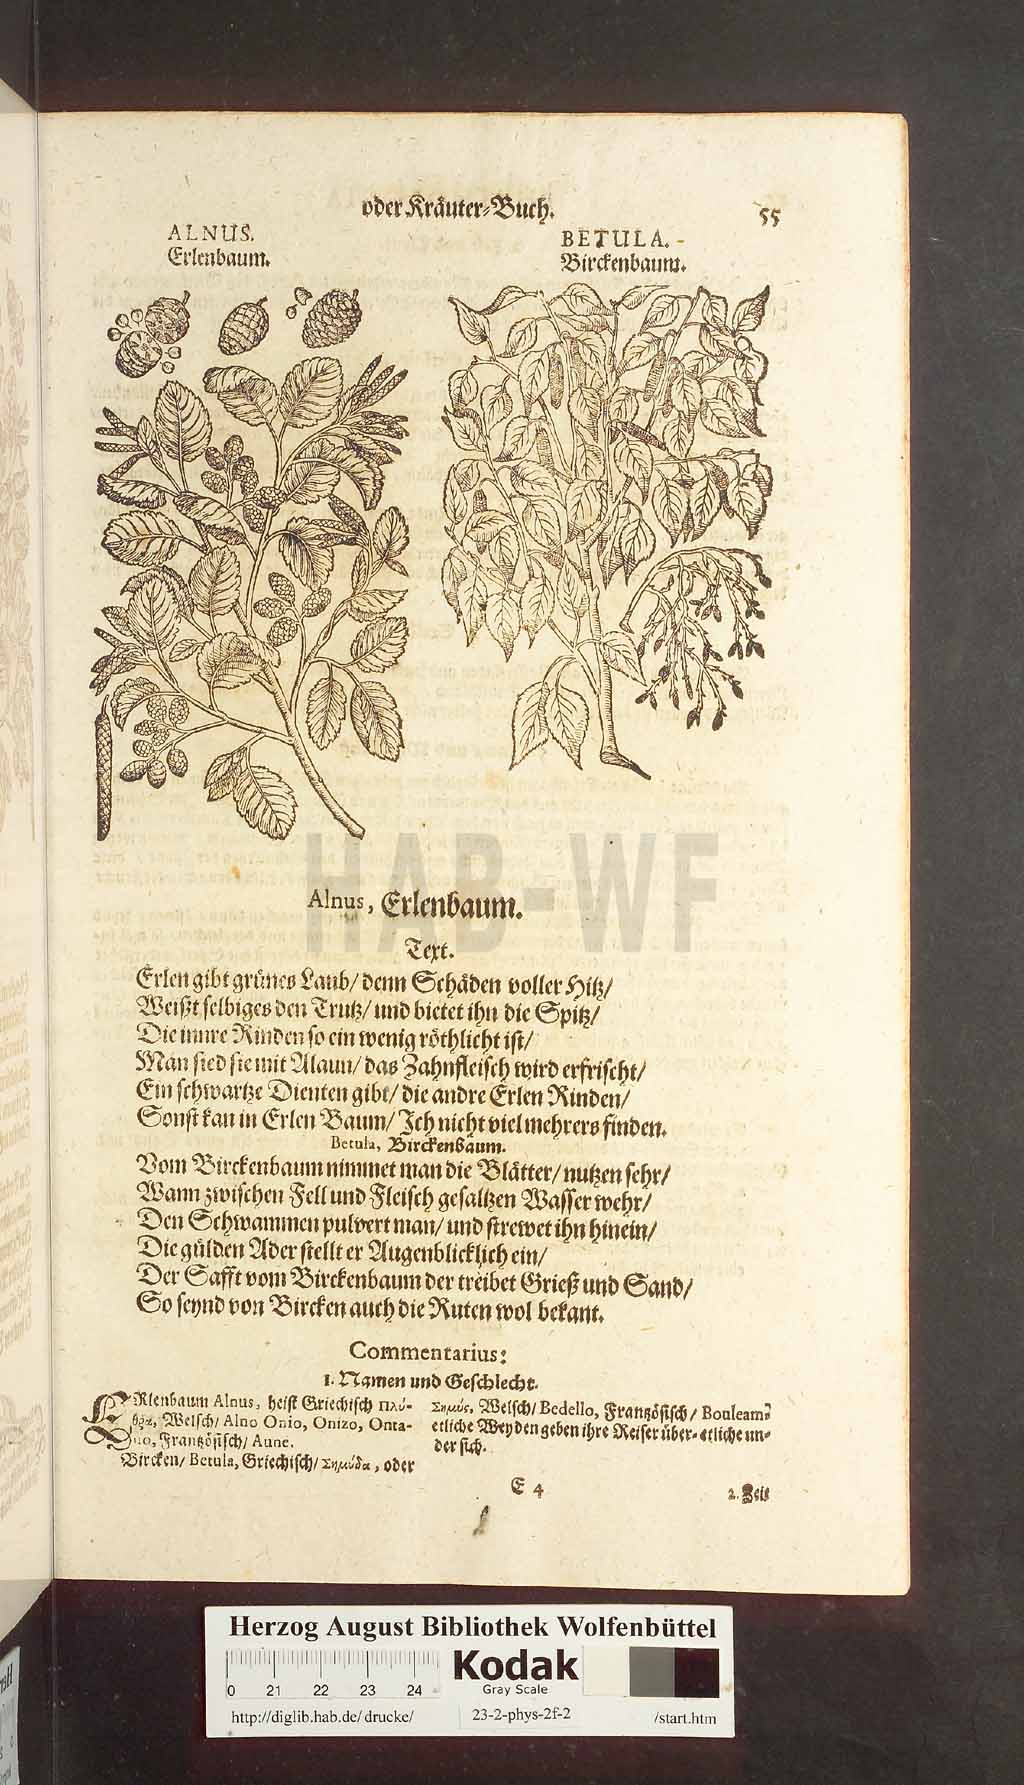 oder Kräuter-Buch.
55
ALNUS.
Erlenbaum.
BETULA.
Birckenbaum.
HAB-WF
Alnus, Erlenbaum.
Text.
Erlen gibt grünes Laub/ denn Schäden voller Hitz/
Weißt selbiges den Trutz/ und bietet ihn die Spitz/
Die innre Rinden so ein wenig röthlicht ist/
Man sied sie mit Alaun/ das Zahnfleisch wird erfrischt/
Ein schwartze Dienten gibt/ die andre Erlen Rinden/
Sonst kan in Erlen Baum/ Ich nicht viel mehrers finden.
Betula, Birckenbaum.
Vom Birckenbaum nimmet man die Blätter/ nutzen sehr/
Wann zwischen Fell und Fleisch gesaltzen Wasser wehr/
Den Schwammen pulvert man/ und strewet ihn hinein/
Die gülden Ader stellt er Augenblicklich ein/
Der Safft vom Birckenbaum der treibet Grieß und Sand/
So seynd von Bircken auch die Ruten wol bekant.
Commentarius:
1. Namen und Geschlecht.
ERlenbaum Alnus, heist Griechisch
Welsch/ Alno Onio, Onizo, Onta-
no, Französisch/ Aune.
Bircken/ Betula, Griechisch/ Σημύδα, oder
Σημύς, Welsch/ Bedello, Französisch/ Bouleam:
etliche Weyden geben ihre Reiser über- etliche un-
der sich.
E 4
2. Zeit
Herzog August Bibliothek Wolfenbüttel
Kodak
Gray Scale
0 21 22 23 24
http://diglib.hab.de/drucke/ 23-2-phys-2f-2 /start.htm